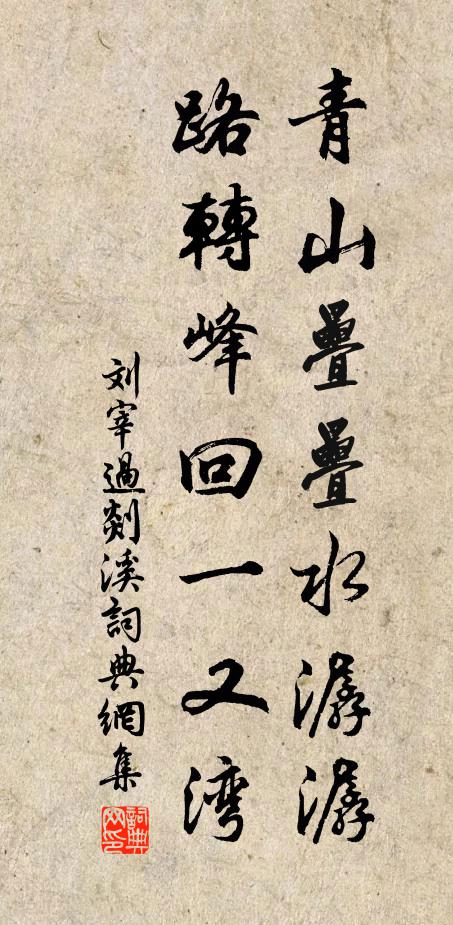 青山疊疊水潺潺
路轉峰回一又湾
刘宰過剡溪詞典網集
詞典网印